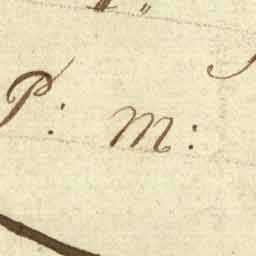 P: M: